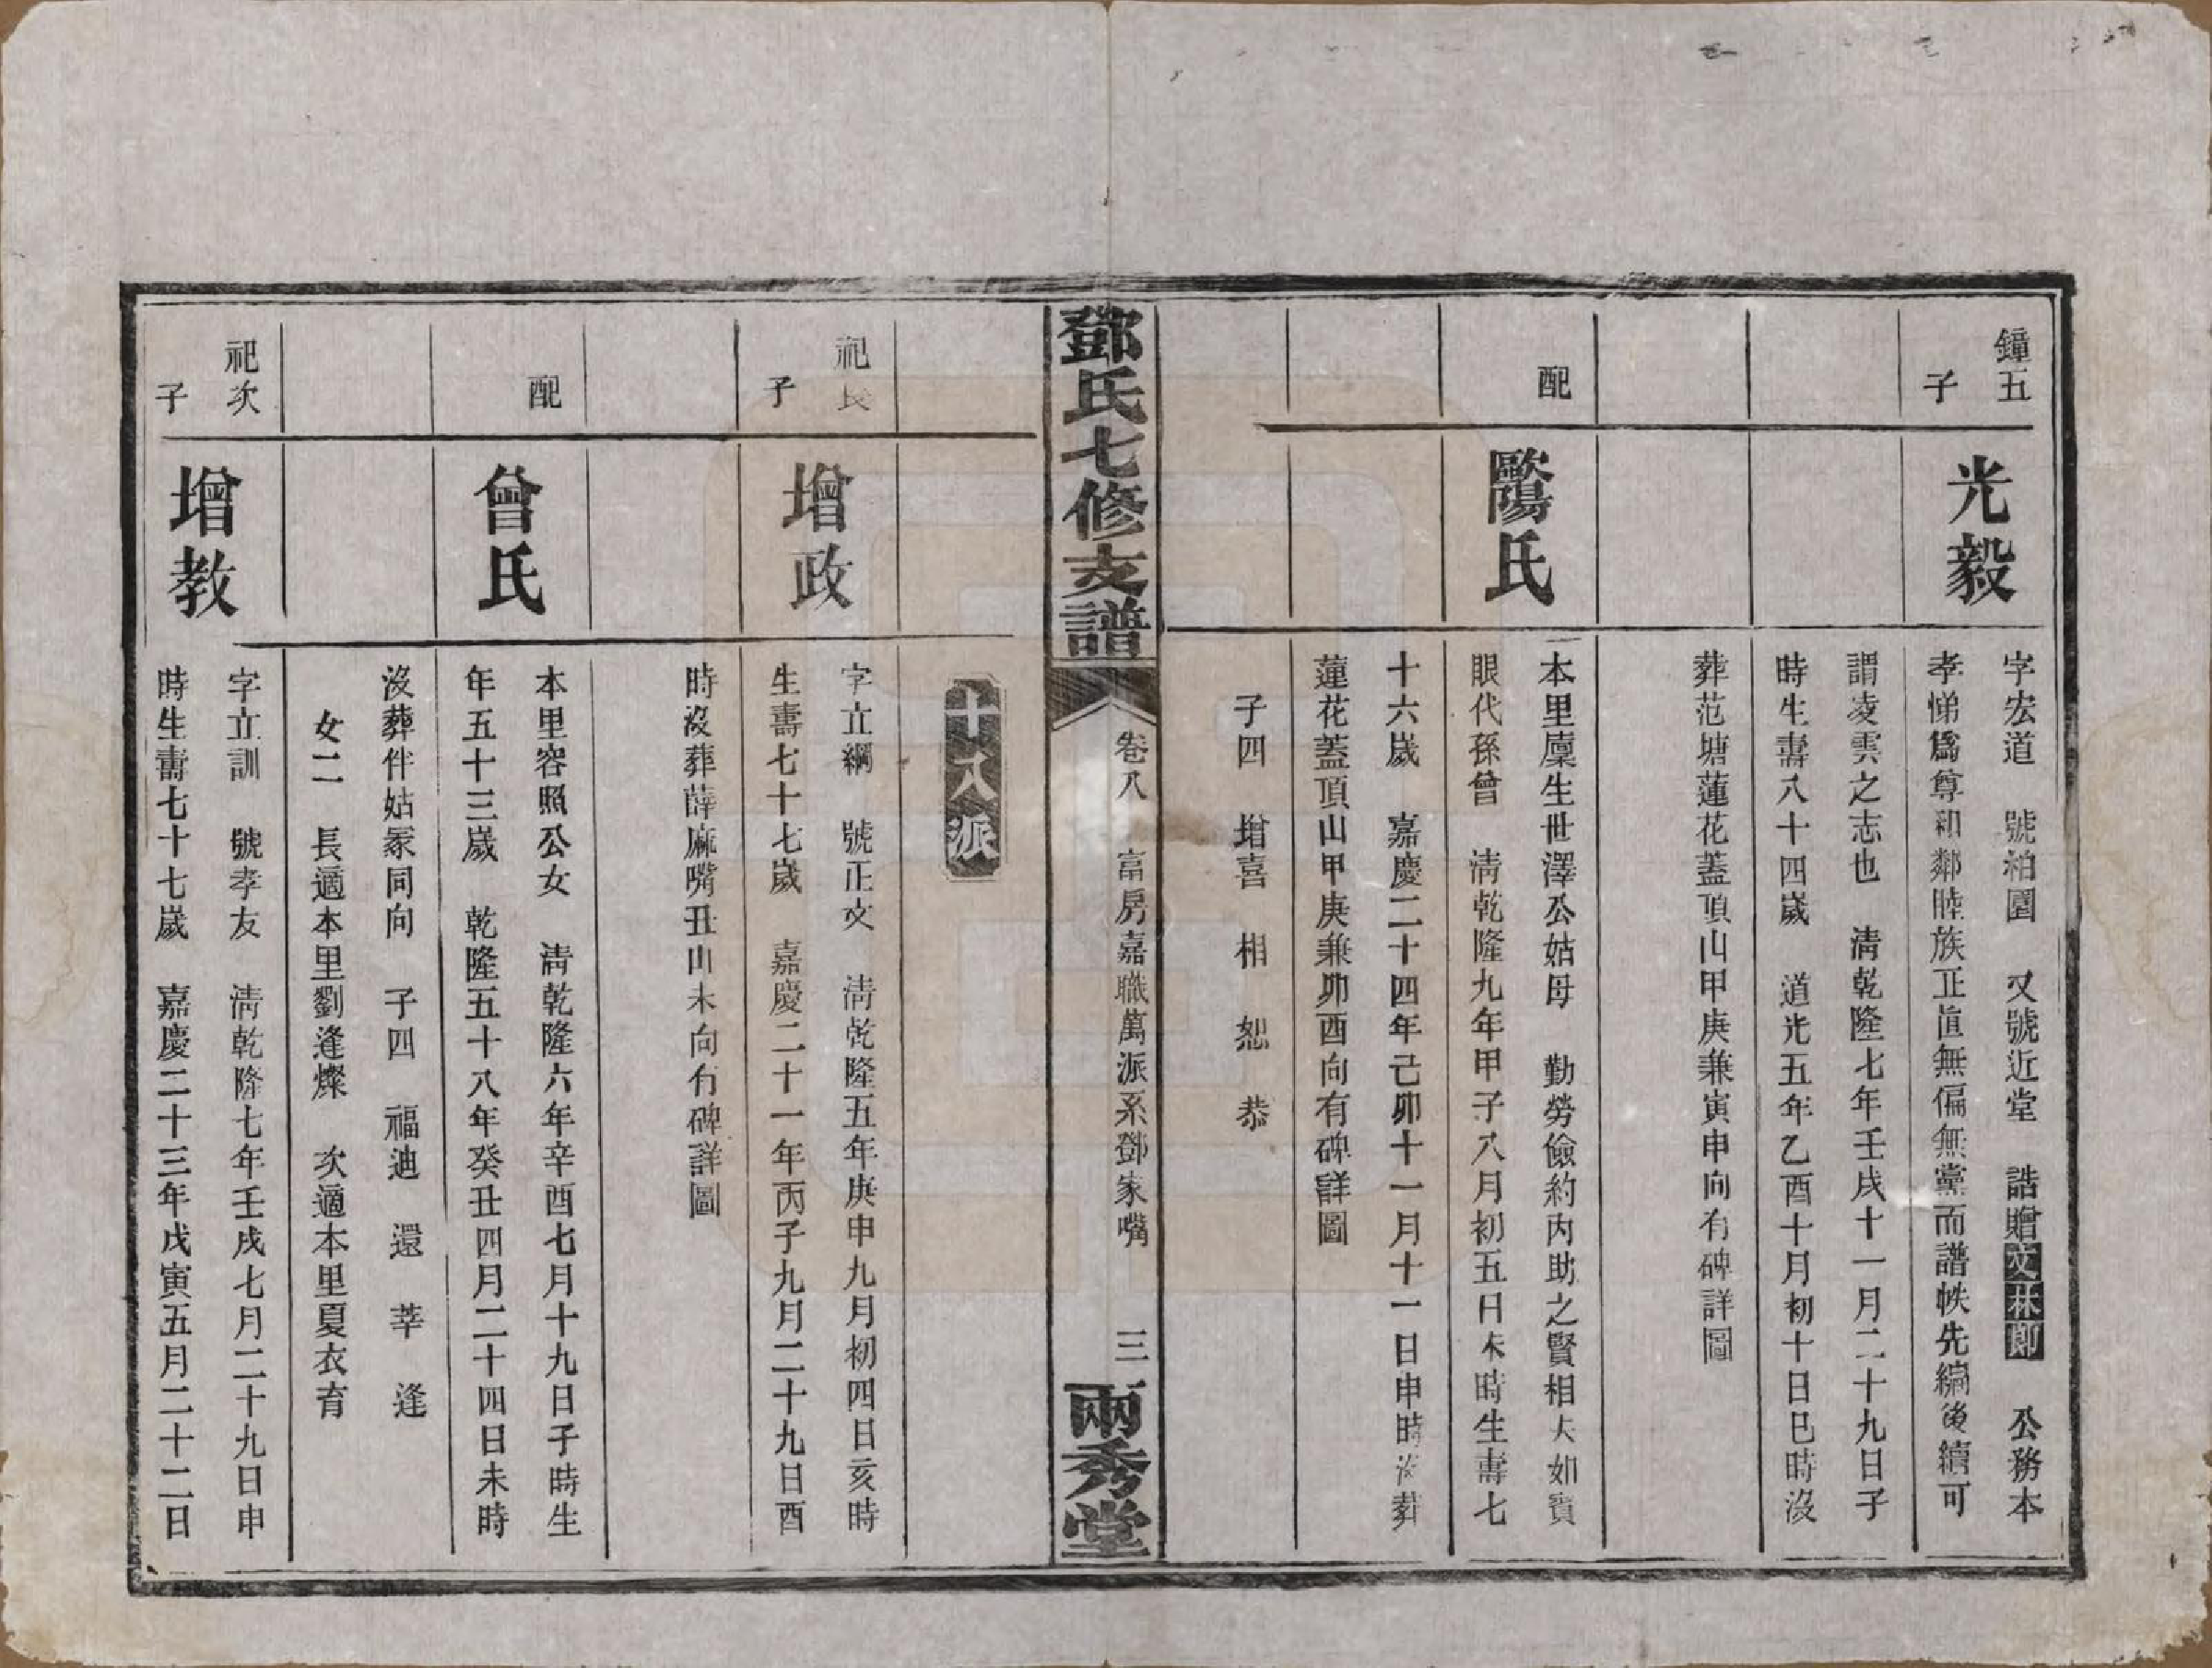 鐘五
子
光毅
字宏道　號柏園　又號近堂　誥贈文林郎　公務本
孝悌爲尊和鄰睦族正直無偏無黨而譜帙先編後續可
謂凌雲之志也　清乾隆七年壬戌十一月二十九日子
時生壽八十四歲　道光五年乙酉十月初十日巳時沒
葬范塘蓮花蓋頂山甲庚兼寅申向有碑詳圖
配
歐陽氏
本里廩生世澤公姑母　勤勞儉約內助之賢相夫如賓
眼代孫曾　清乾隆九年甲子八月初五日未時生壽七
十六歲　嘉慶二十四年己卯十一月十一日申時沒葬
蓮花蓋頂山甲庚兼卯酉向有碑詳圖
子四　增喜　相　恕　恭
鄧氏七修支譜
卷八　富房嘉職萬派系鄧家嘴　三
兩秀堂
十八派
祀長
子
增政
字立綱　號正文　清乾隆五年庚申九月初四日亥時
生壽七十七歲　嘉慶二十一年丙子九月二十九日酉
時沒葬薛麻嘴丑山未向有碑詳圖
配
曾氏
本里容照公女　清乾隆六年辛酉七月十九日子時生
年五十三歲　乾隆五十八年癸丑四月二十四日未時
沒葬伴姑冢同向　子四　福迪　還　莘　逢
女二　長適本里劉逢燦　次適本里夏衣育
祀次
子
增教
字立訓　號孝友　清乾隆七年壬戌七月二十九日申
時生壽七十七歲　嘉慶二十三年戊寅五月二十二日